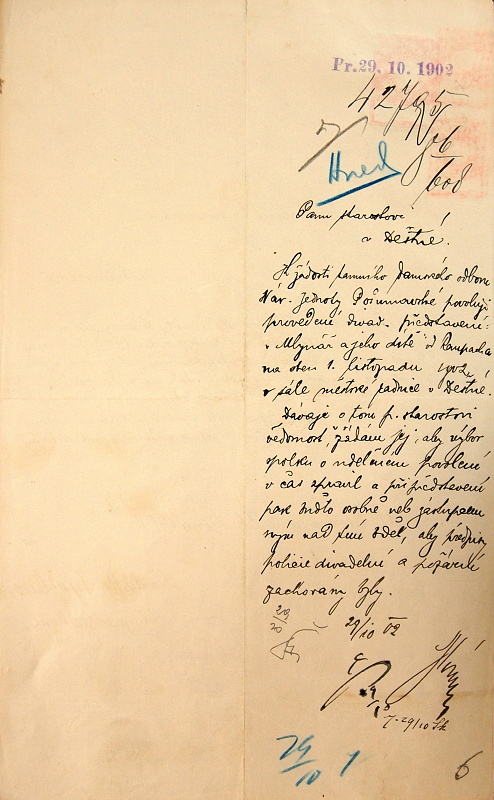 Pr. 29. 10. 1902
42795
16
Hned
Panu starostovi
v Deštné.
K žádosti tamního damského odboru
Nár. jednoty Pošumavské povoluji
provedení divad. představení:
„Mlynář a jeho dítě" od Raupacha
na den 1. listopadu 1902
v sále městské radnice v Deštné.
Dávaje o tom p. starostovi
vědomost, žádám jej, aby výbor
spolku o uděleném povolení
v čas zpravil a při představení
pak osobně neb zástupcem
svým nad tím bděl, aby předpisy
policie divadelní a požární
zachovány byly.
29/10 02
29/10
7. 29/10
29/10
6